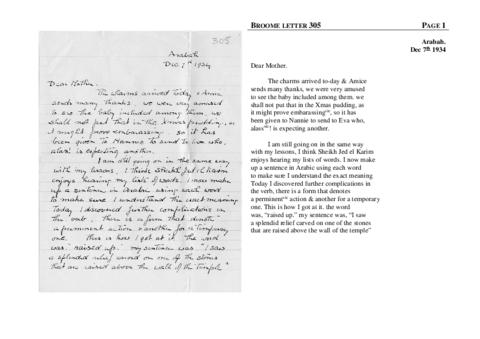 305
Arabah
Dec. 7th 1934
Dear Mother.
The charms arrived today & Amice
sends many thanks, we were very amused
to see the baby included among them, we
shall not put that in the Xmas pudding, as
it might prove embarassing, so it has
been given to Nannie to send to Eva who,
alass! is expecting another.
I am still going on in the same way
with my lessons, I think Sheikh Jed el Karim
enjoys hearing my lists of words. I now make
up a sentence in Arabic using each word
to make sure I understand the exact meaning
Today I discovered further complications in
the verb, there is a form that denotes
a perminent action & another for a temporary
one. This is how I got at it. the word
was, "raised up." my sentence was "I saw
a splendid relief carved on one of the stones
that are raised above the wall of the temple"
BROOME LETTER 305 PAGE 1
Arabah.
Dec 7th 1934
Dear Mother.
The charms arrived to-day & Amice
sends many thanks, we were very amused
to see the baby included among them. we
shall not put that in the Xmas pudding, as
it might prove embarassing sic, so it has
been given to Nannie to send to Eva who,
alass sic! is expecting another.
I am still going on in the same way
with my lessons, I think Sheikh Jed el Karim
enjoys hearing my lists of words. I now make
up a sentence in Arabic using each word
to make sure I understand the exact meaning
Today I discovered further complications in
the verb, there is a form that denotes
a perminent sic action & another for a temporary
one. This is how I got at it. the word
was, "raised up." my sentence was, "I saw
a splendid relief carved on one of the stones
that are raised above the wall of the temple"